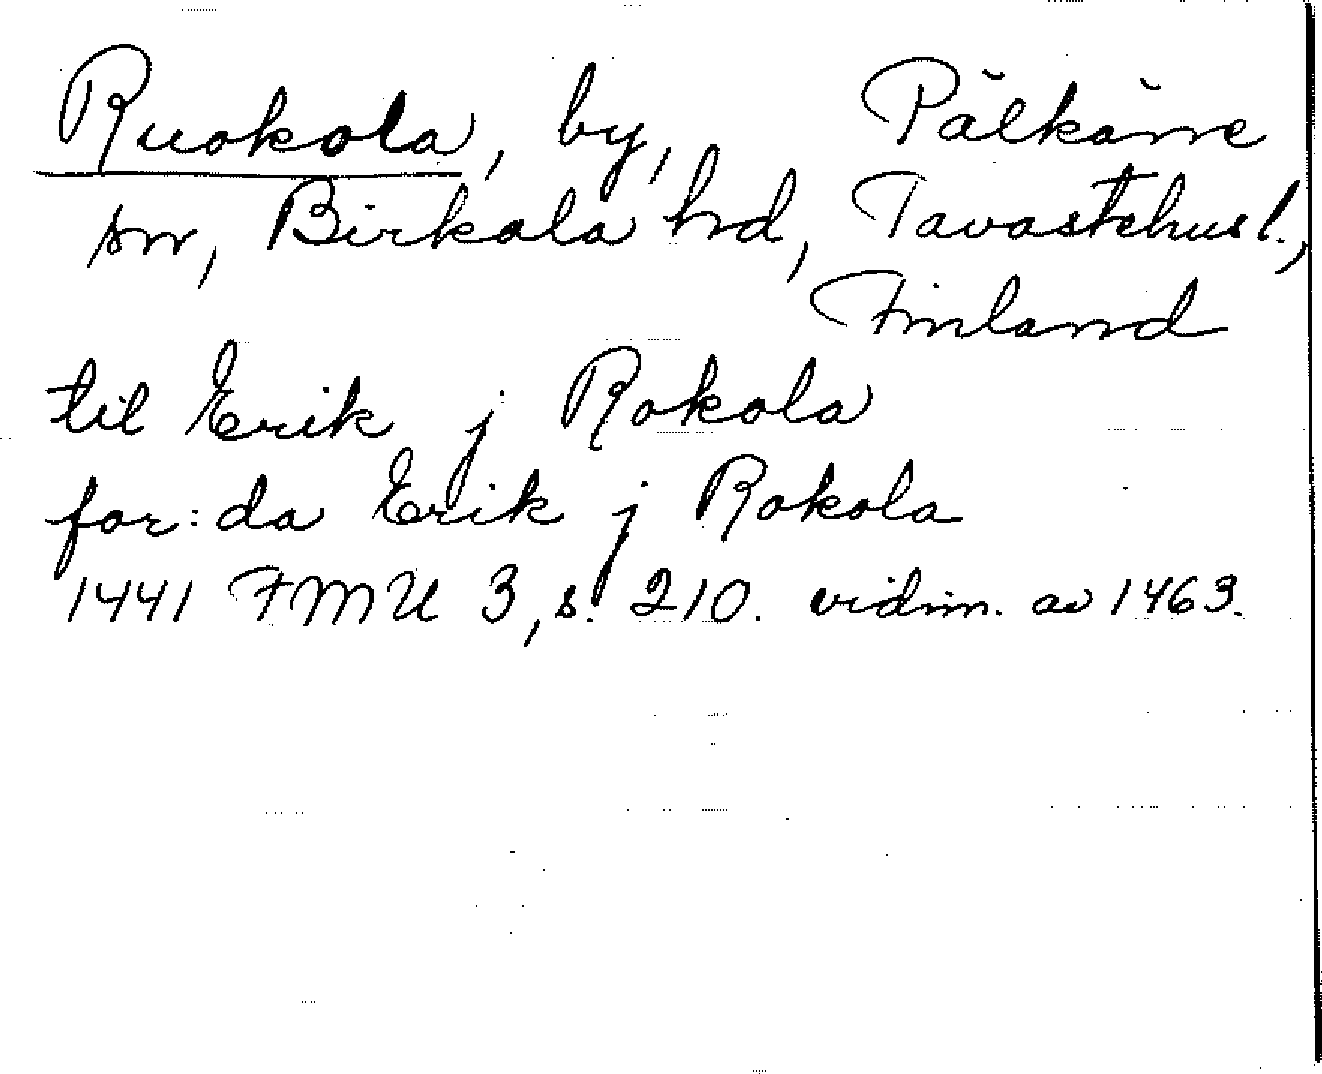 Ruokola, by, Pälkäne
sn, Birkala hd, Tavastehus l.,
Finland
til Erik j Rokola
for: da Erik j Rokola
1441 FMU 3, s. 210. vidim. av 1463.